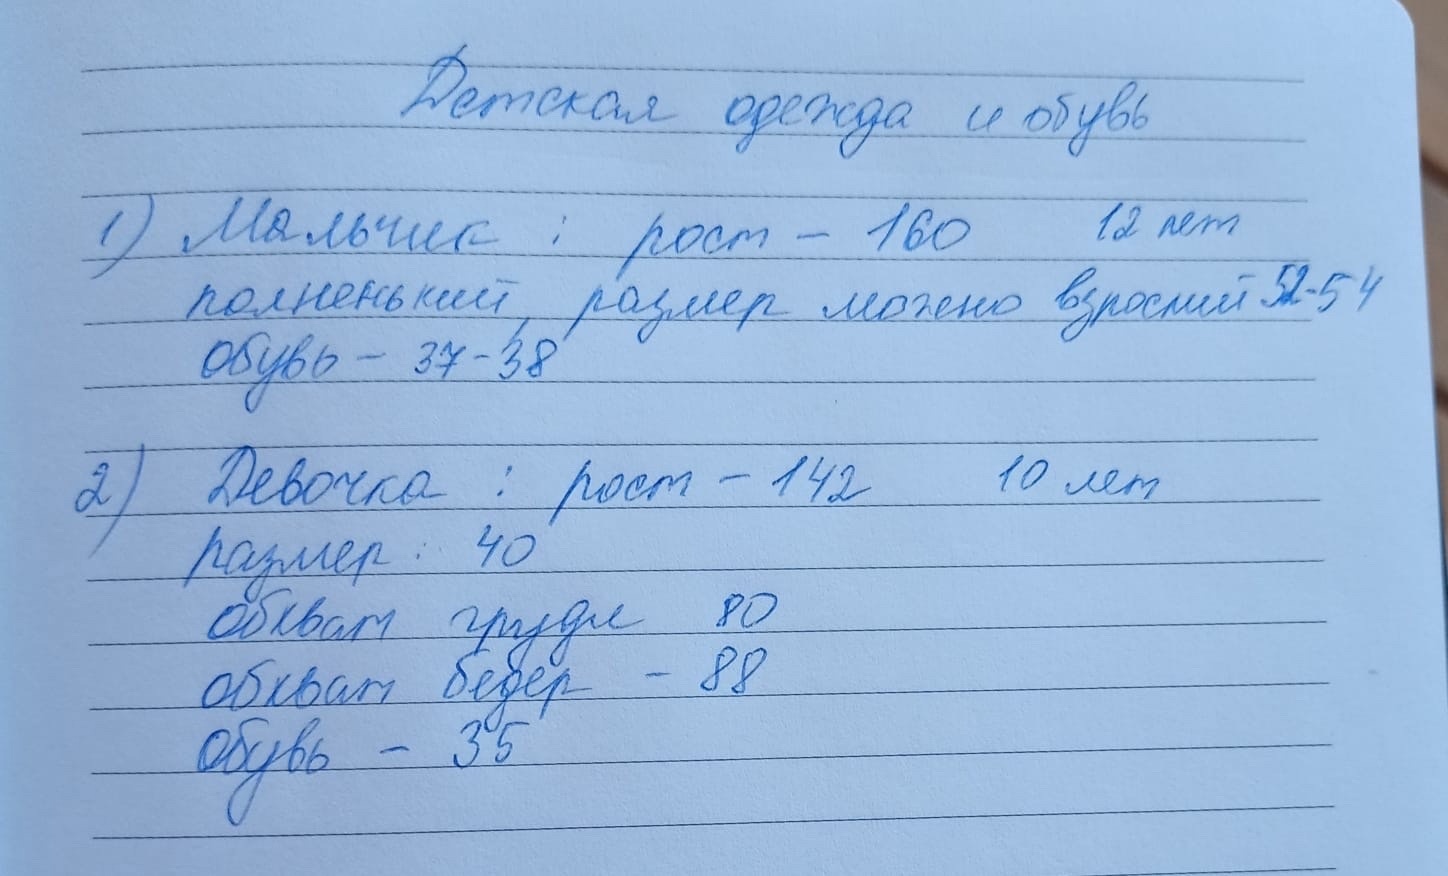 Детская одежда и обувь
1) Мальчик : рост – 160 12 лет
полненький, размер можно взрослый 52-54
обувь – 37-38
2) Девочка : рост – 142 10 лет
размер : 40
обхват груди 80
обхват бедер – 88
обувь – 35